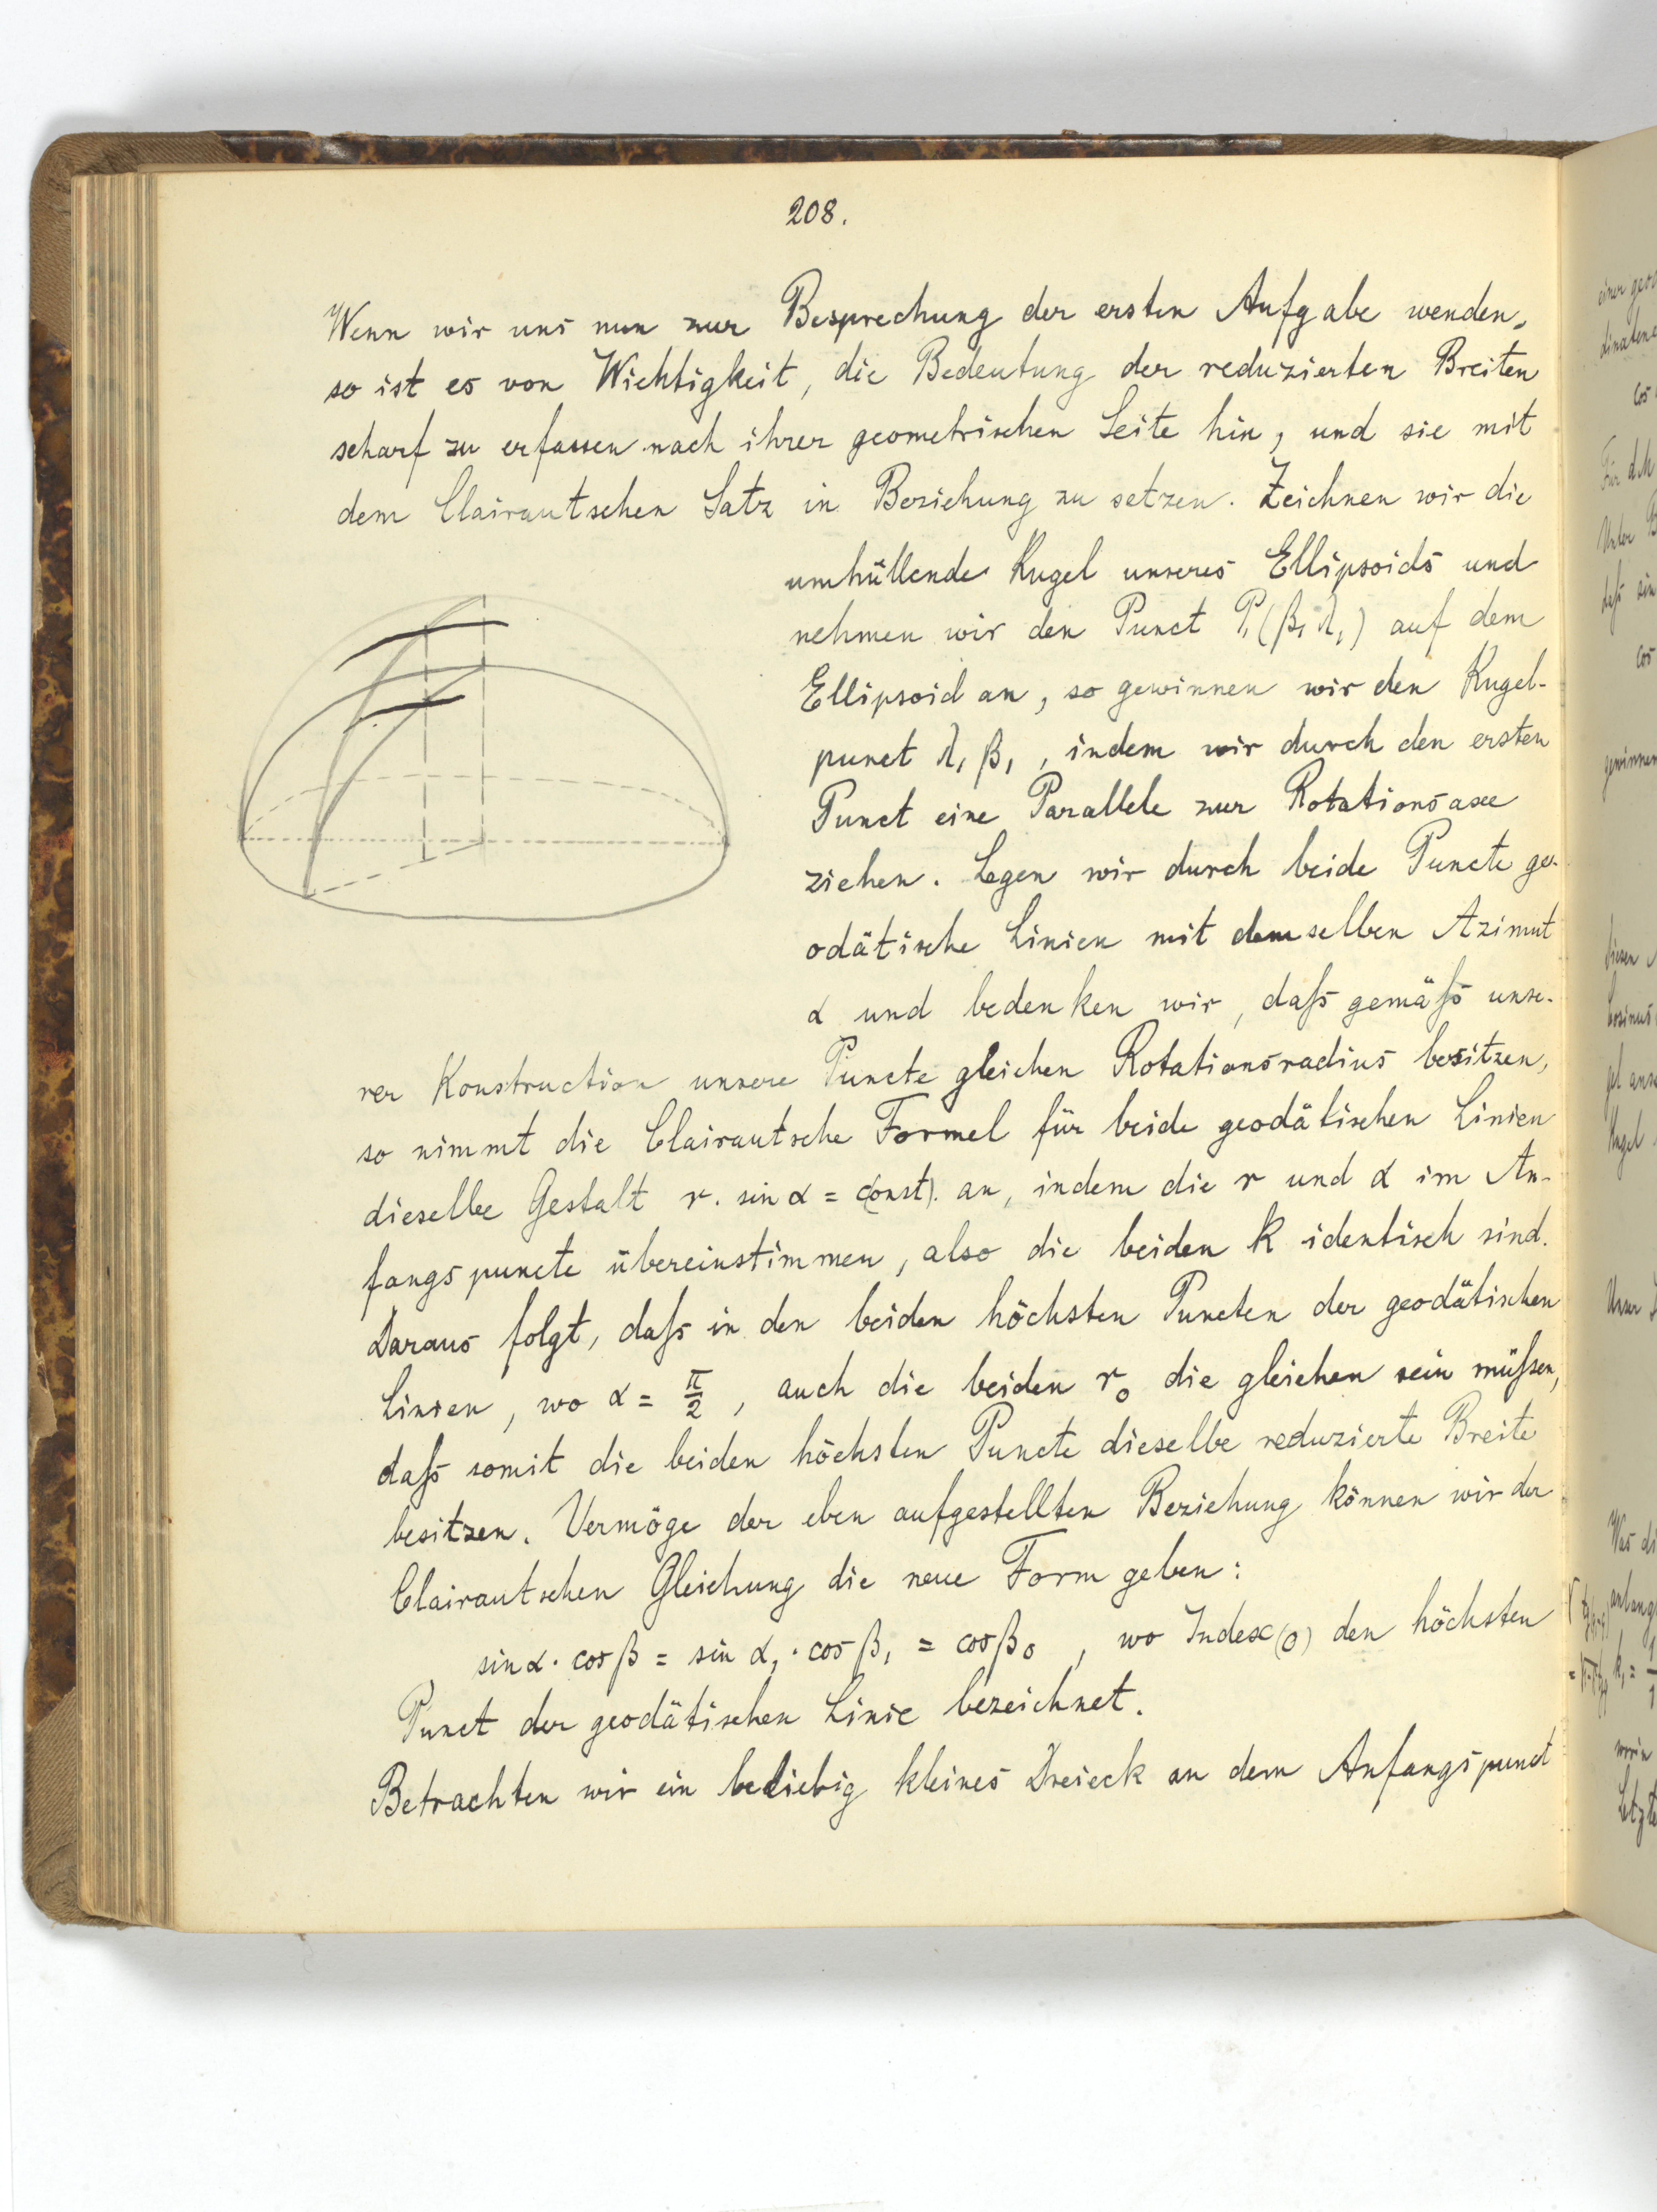 208.
Wenn wir uns nun zur Besprechung der ersten Aufgabe wenden,
so ist es von Wichtigkeit, die Bedeutung der reduzierten Breiten
scharf zu erfassen nach ihrer geometrischen Seite hin, und sie mit
dem Clairautschen Satz in Beziehung zu setzen. Zeichnen wir die
umhüllende Kugel unseres Ellipsoids und
nehmen wir den Punct P₁(β₁ λ₁) auf dem
Ellipsoid an, so gewinnen wir den Kugel-
punct λ₁ β₁, indem wir durch den ersten
Punct eine Parallele zur Rotationsaxe
ziehen. Legen wir durch beide Puncte ge-
odätische Linien mit demselben Azimut
α und bedenken wir, daß gemäß unse-
rer Konstruction unsere Puncte gleichen Rotationsradius besitzen,
so nimmt die Clairautsche Formel für beide geodätischen Linien
dieselbe Gestalt r. sin α = const. an, indem die r und α im An-
fangspuncte übereinstimmen, also die beiden k identisch sind.
Daraus folgt, daß in den beiden höchsten Puncten der geodätischen
Linien, wo α = π/2, auch die beiden r₀ die gleichen sein müßen,
daß somit die beiden höchsten Puncte dieselbe reduzierte Breite
besitzen. Vermöge der eben aufgestellten Beziehung können wir der
Clairautschen Gleichung die neue Form geben:
sin α · cos β = sin α₁ · cos β₁ = cos β₀, wo Index (0) den höchsten
Punct der geodätischen Linie bezeichnet.
Betrachten wir ein beliebig kleines Dreieck an dem Anfangspunct